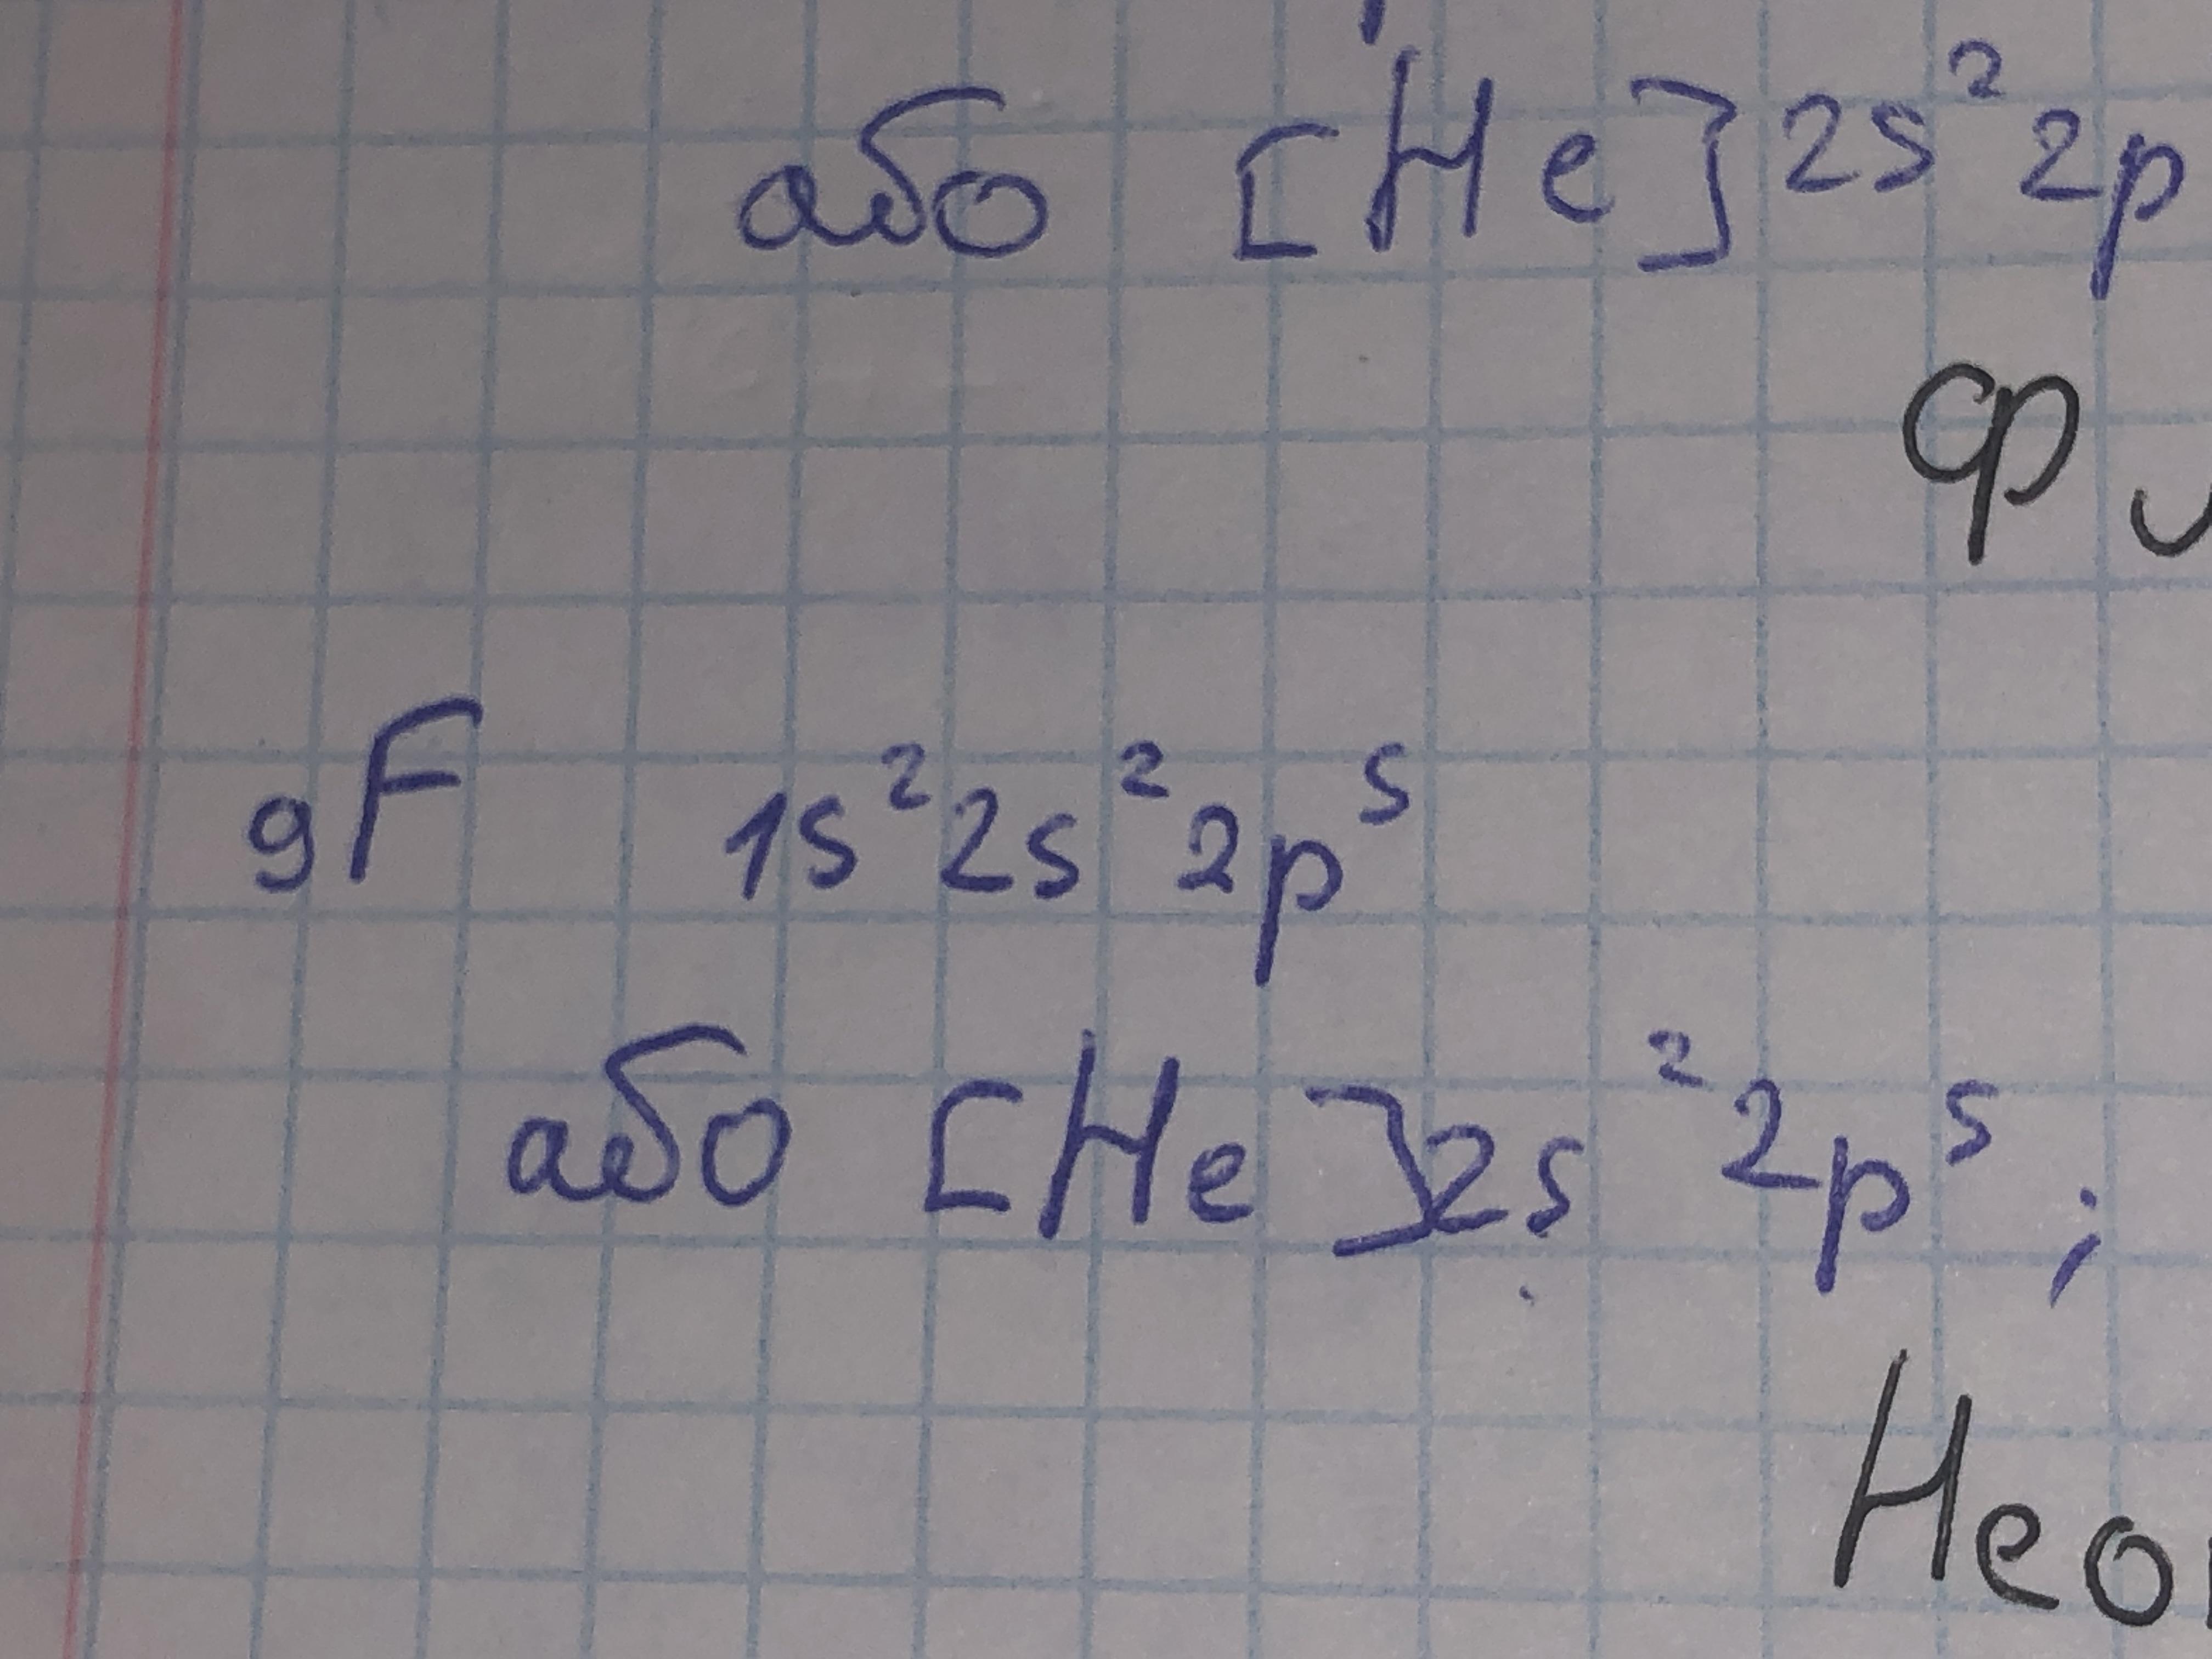 або [He]2s²2p
₉F 1s²2s²2p⁵
або [He]2s²2p⁵;